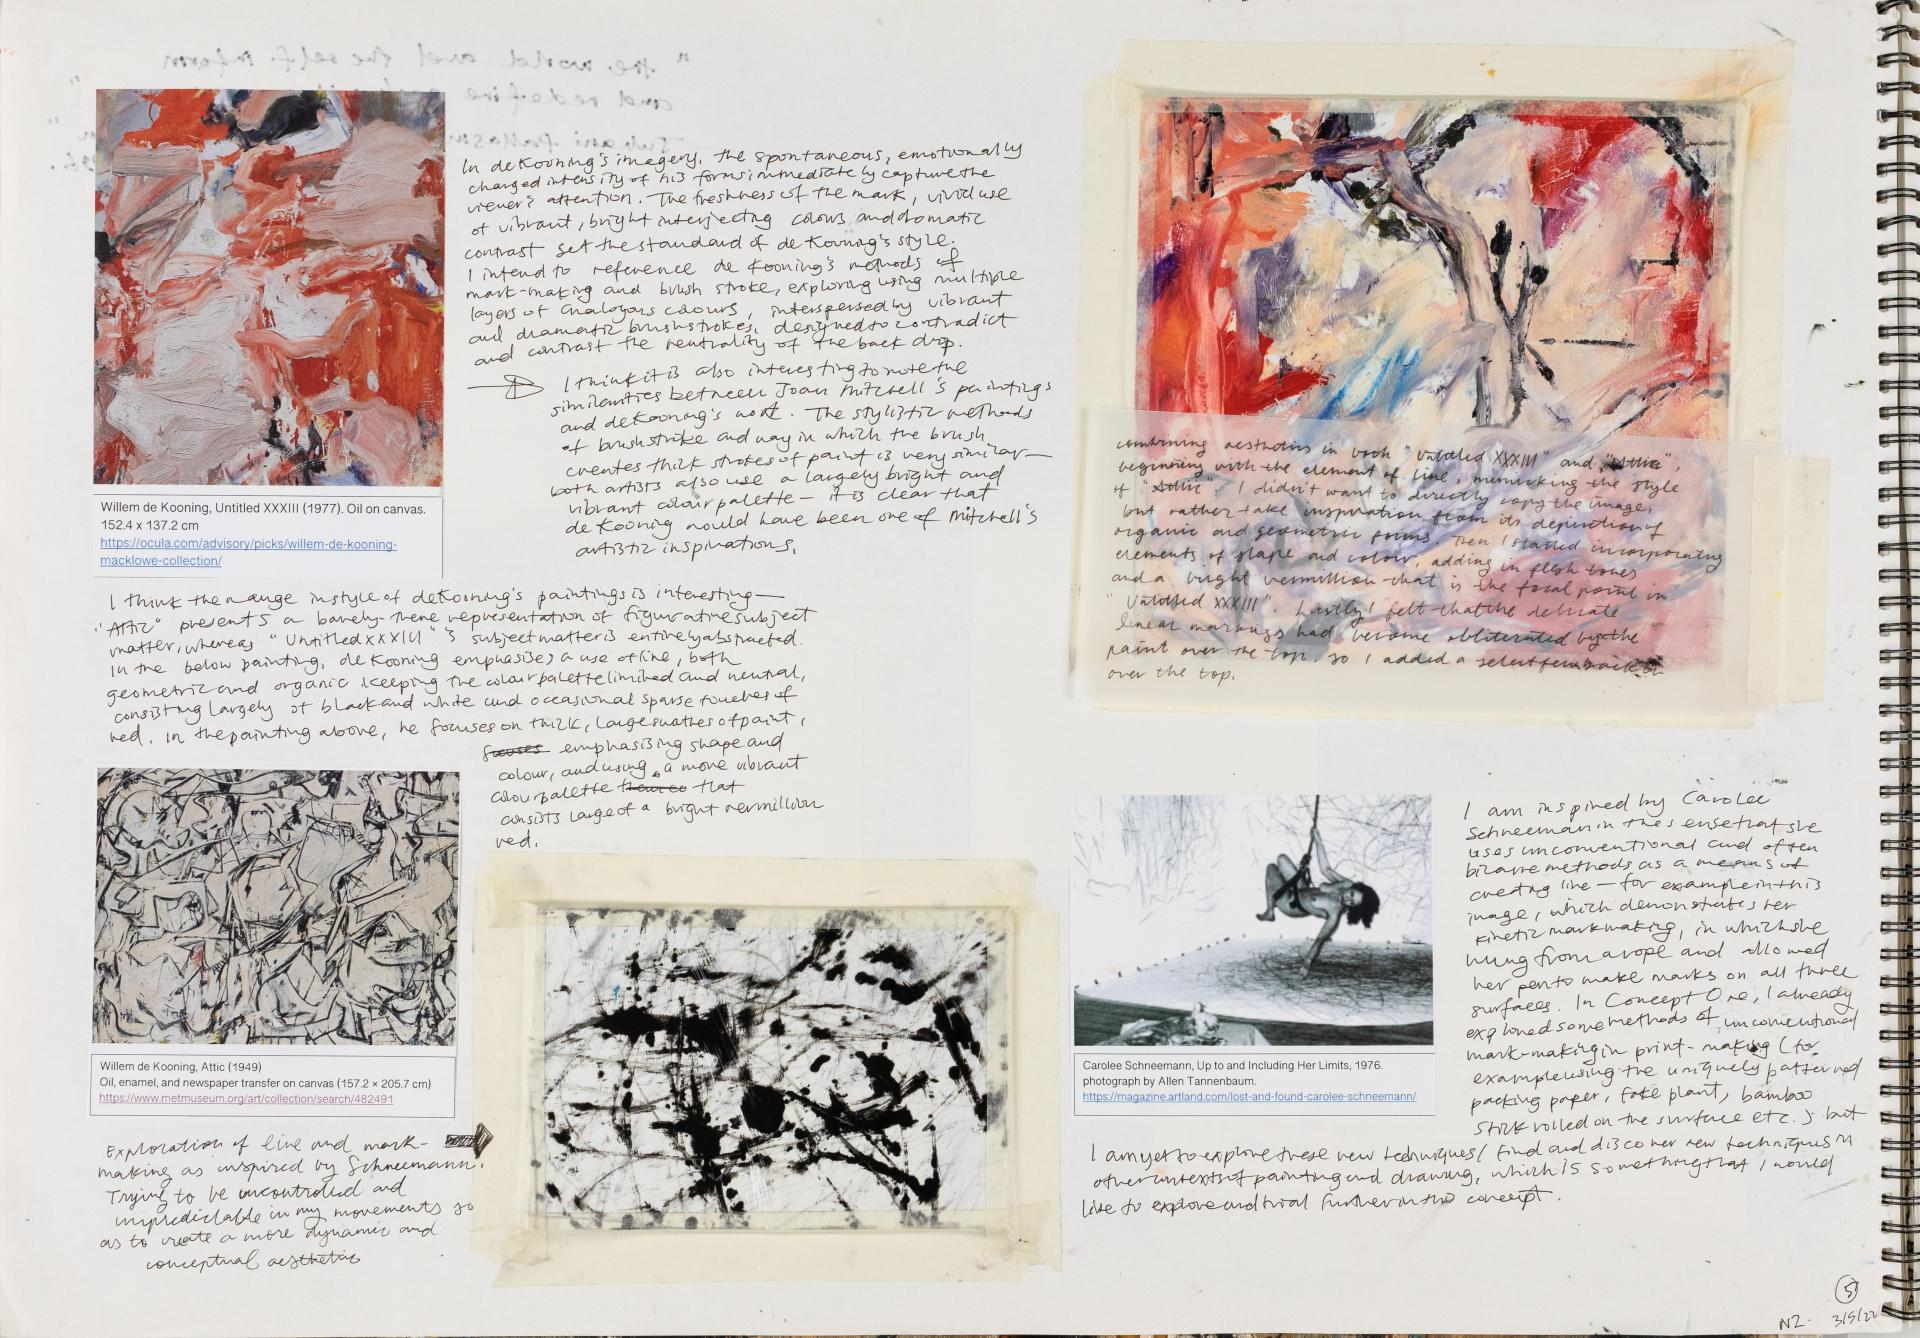 In de Kooning's imagery, the spontaneous, emotionally
charged intensity of his forms immediately capture the
viewer's attention. The freshness of the mark, vivid use
of vibrant, bright interjecting colours, and domatic
contrast set the standard of de Kooning's style.
I intend to reference de Kooning's methods of
mark-making and brush stroke, exploring using multiple
layers of analogous colours, interspersed by vibrant
and dramatic brushstrokes, designed to contradict
and contrast the neutrality of the back drop.
I think it is also interesting to note the
similarities between Joan Mitchell's paintings
and de Kooning's work. The stylistic methods
of brushstroke and way in which the brush
creates thick strokes of paint is very similar—
both artists also use a largely bright and
vibrant colour palette — it is clear that
de Kooning would have been one of Mitchell's
artistic inspirations.
Willem de Kooning, Untitled XXXIII (1977). Oil on canvas.
152.4 x 137.2 cm
https://ocula.com/advisory/picks/willem-de-kooning-
macklowe-collection/
I think the range in style of de Kooning's paintings is interesting—
"Attic" presents a barely-there representation of figurative subject
matter, whereas "Untitled XXXIII"'s subject matter is entirely abstracted.
In the below painting, de Kooning emphasises a use of line, both
geometric and organic keeping the colour palette limited and neutral,
consisting largely of black and white and occasional sparse touches of
red. In the painting above, he focuses on thick, large swathes of paint,
focuses emphasising shape and
colour, and using a more vibrant
colour palette that
consists large of a bright vermillion
red.
Willem de Kooning, Attic (1949)
Oil, enamel, and newspaper transfer on canvas (157.2 × 205.7 cm)
https://www.metmuseum.org/art/collection/search/482491
Exploration of line and mark-
making as inspired by Schneemann.
Trying to be uncontrolled and
unpredictable in my movements so
as to create a more dynamic and
conceptual aesthetic
combining aesthetics in both "Untitled XXXIII" and "Attic",
beginning with the element of line, mimicking the style
of "Attic". I didn't want to directly copy the image,
but rather take inspiration from its depiction of
organic and geometric forms. Then I started incorporating
elements of shape and colour, adding in flesh tones
and a bright vermillion that is the focal point in
"Untitled XXXIII". Lastly I felt that the delicate
linear markings had become obliterated by the
paint over the top, so I added a select few back in
over the top.
Carolee Schneemann, Up to and Including Her Limits, 1976.
photograph by Allen Tannenbaum.
https://magazine.artland.com/lost-and-found-carolee-schneemann/
I am inspired by Carolee
Schneeman in the sense that she
uses unconventional and often
bizarre methods as a means of
creating line — for example in this
image, which demonstrates her
kinetic markmaking, in which she
hung from a rope and allowed
her pen to make marks on all three
surfaces. In Concept One, I already
explored some methods of unconventional
mark-making in print-making (for
example using the uniquely patterned
packing paper, fake plant, bamboo
stick rolled on the surface etc.) but
I am yet to explore these new techniques/find and discover new techniques in
other contexts of painting and drawing, which is something that I would
like to explore and trial further in this concept.
5
NZ. 3/5/22